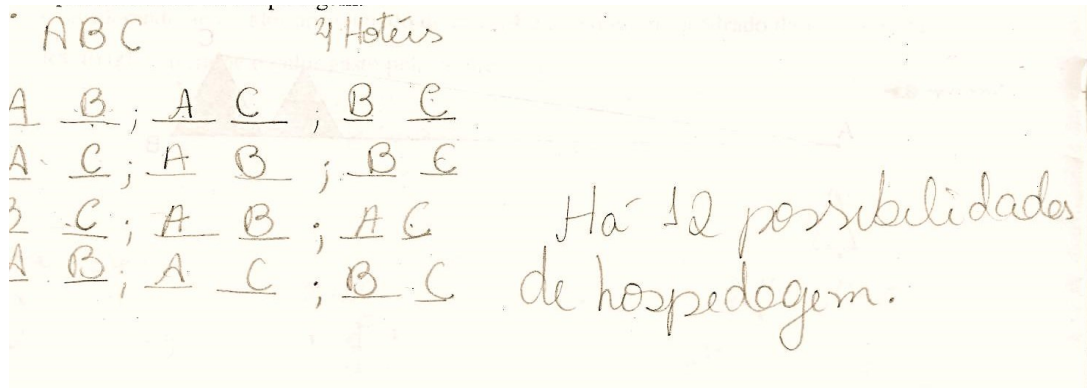 A B C 4 Hotéis
A B; A C; B C
A C; A B; B C
B C; A B; A C
A B; A C; B C
Há 12 possibilidades
de hospedagem.